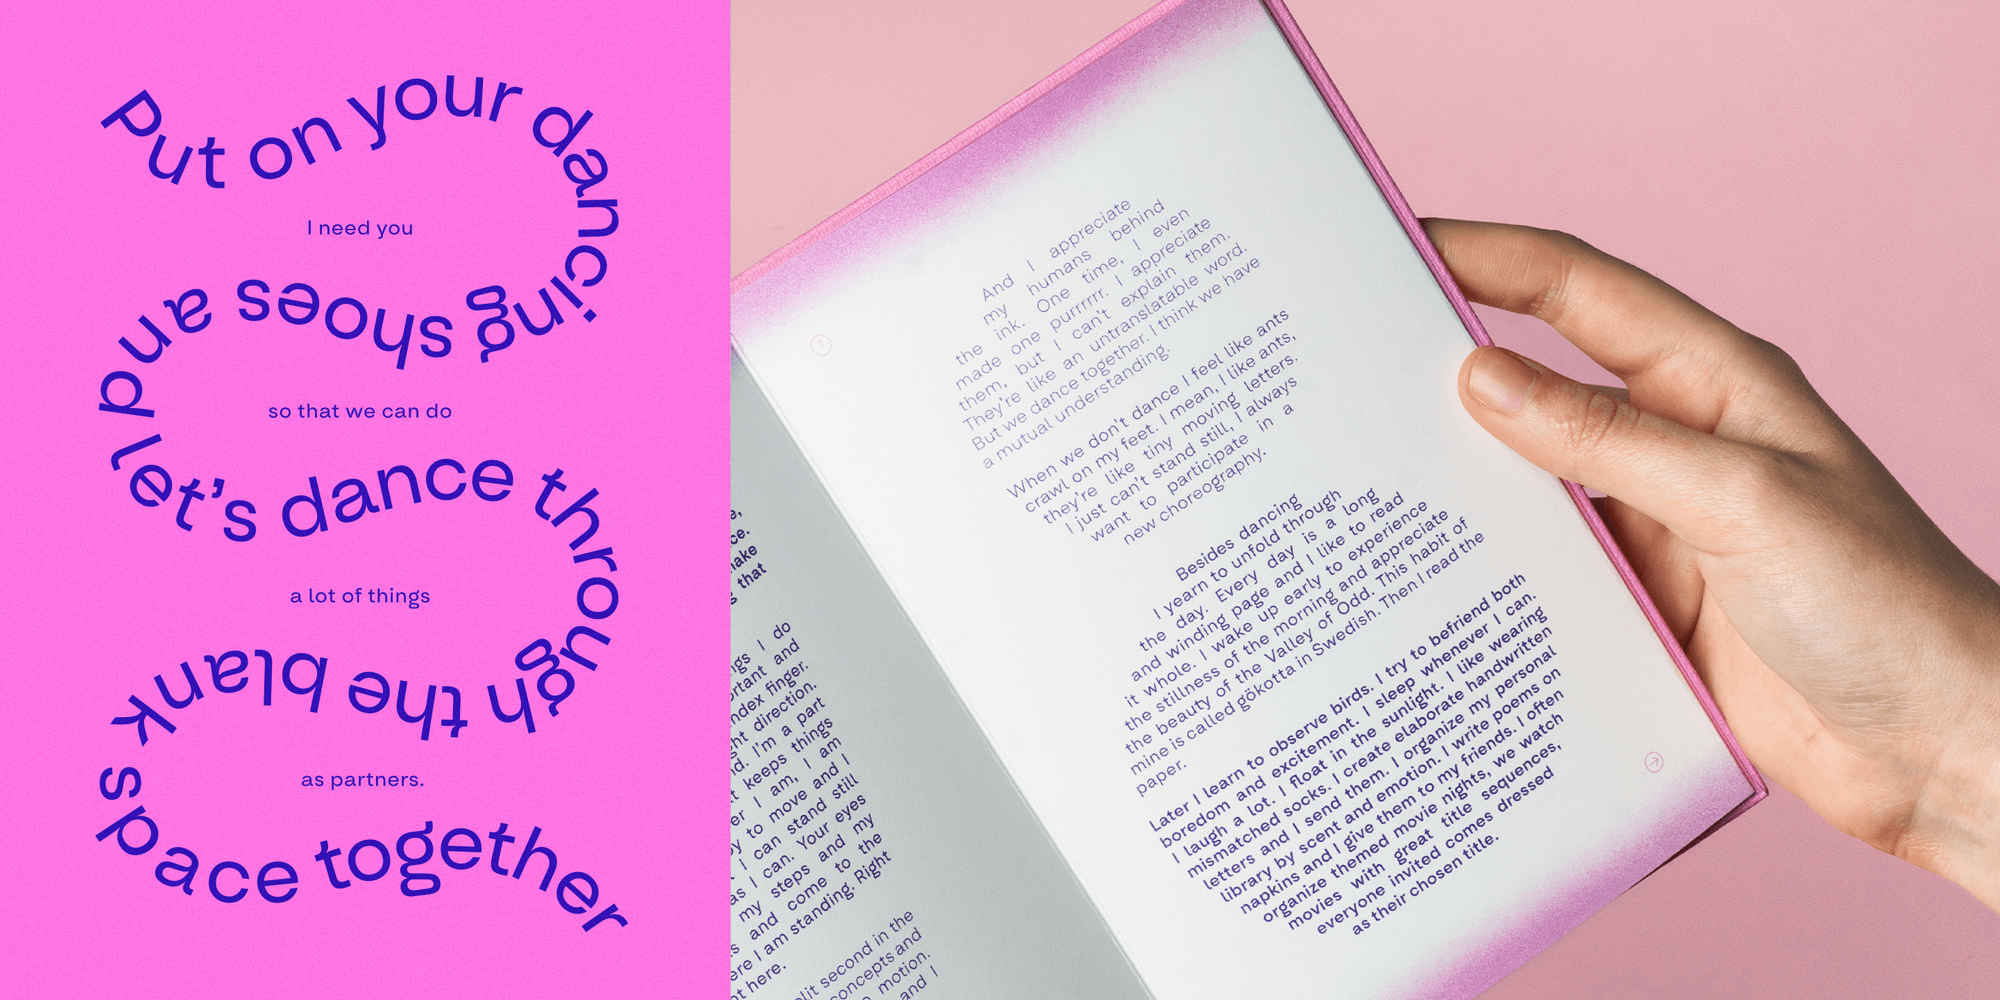 Put on your dancing shoes and let's dance through the blank space together
I need you
so that we can do
a lot of things
as partners.
And I appreciate
my humans behind
the ink. One time, I even
made one purrrrrr. I appreciate
them, but I can't explain them.
They're like an untranslatable word.
But we dance together. I think we have
a mutual understanding.
When we don't dance I feel like ants
crawl on my feet. I mean, I like ants,
they're like tiny moving letters.
I just can't stand still, I always
want to participate in a
new choreography.
Besides dancing
I yearn to unfold through
the day. Every day is a long
and winding page and I like to read
it whole. I wake up early to experience
the stillness of the morning and appreciate
the beauty of the Valley of Odd. This habit of
mine is called gökotta in Swedish. Then I read the
paper.
Later I learn to observe birds. I try to befriend both
boredom and excitement. I sleep whenever I can.
I laugh a lot. I float in the sunlight. I like wearing
mismatched socks. I create elaborate handwritten
letters and I send them. I organize my personal
library by scent and emotion. I write poems on
napkins and I give them to my friends. I often
organize themed movie nights, we watch
movies with great title sequences,
everyone invited comes dressed
as their chosen title.
ce.
make
that
I do
and
index finger.
direction.
I'm a part
keeps things
I am, I am
to move and I
I can stand still
as I can. Your eyes
my steps and my
and come to the
I am standing. Right
here.
split second in the
concepts and
motion.
and I